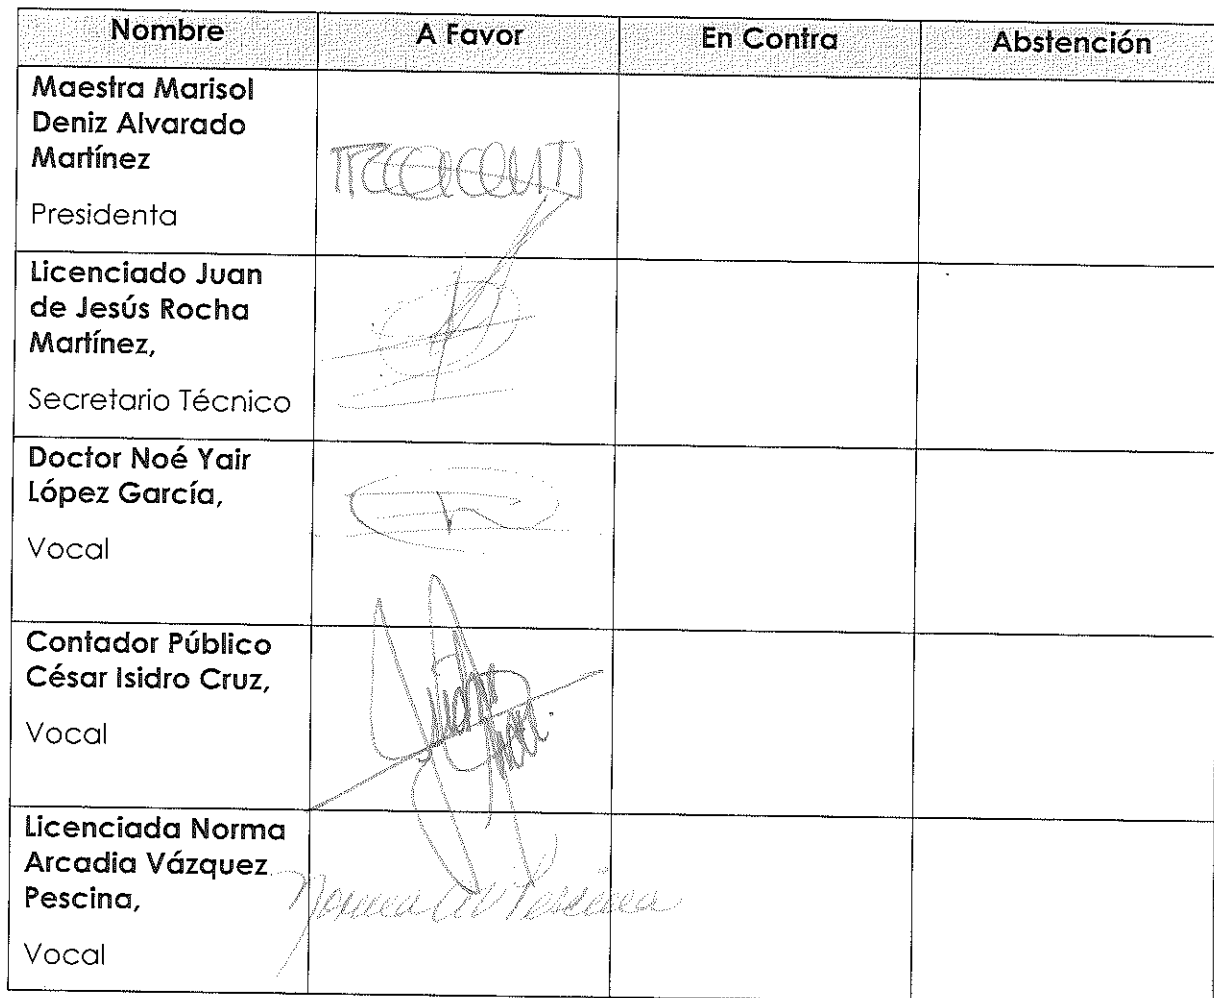 Nombre A Favor En Contra Abstención
Maestra Marisol
Deniz Alvarado
Martínez
Presidenta
Licenciado Juan
de Jesús Rocha
Martínez,
Secretario Técnico
Doctor Noé Yair
López García,
Vocal
Contador Público
César Isidro Cruz,
Vocal
Licenciada Norma
Arcadia Vázquez
Pescina,
Norma AV Pescina
Vocal